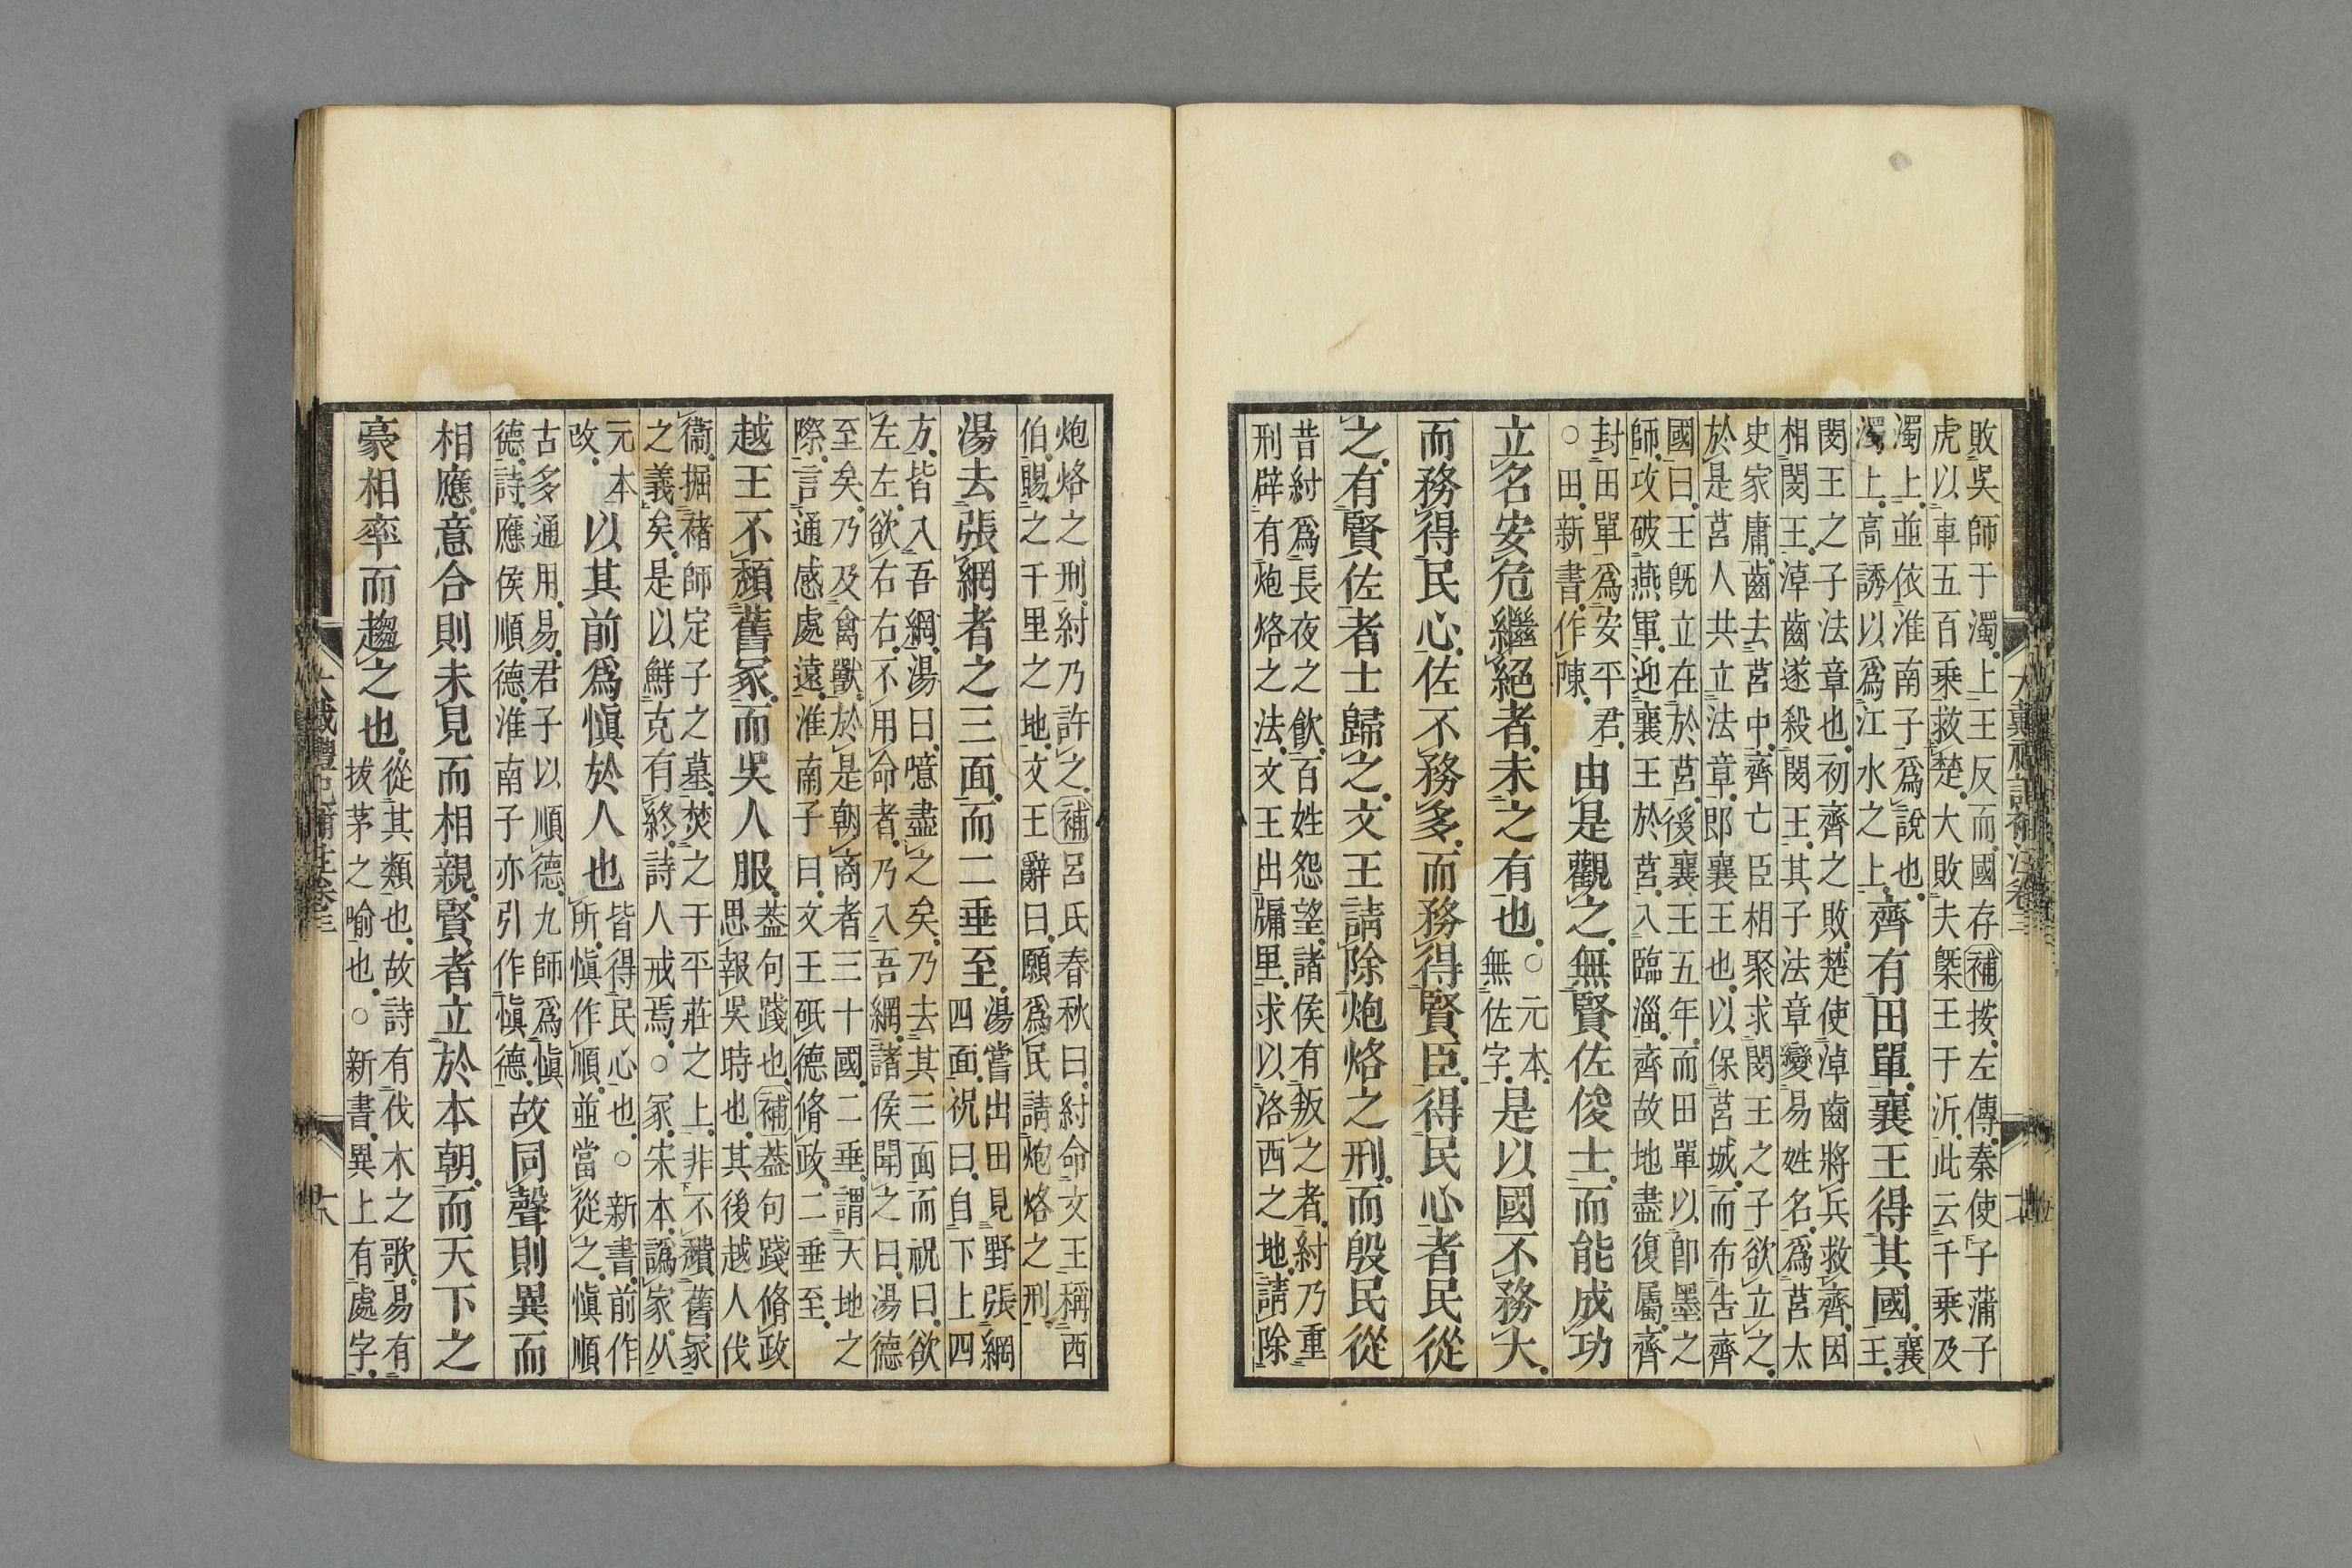 敗吳師于濁上王反而國存補按左傳秦使子蒲子
虎以車五百乘救楚大敗夫槩王于沂此云千乘及
濁上並依淮南子爲說也
濁上高誘以爲江水之上
齊有田單襄王得其國
襄
王
閔王之子法章也初齊之敗楚使淖齒將兵救齊因
相閔王淖齒遂殺閔王其子法章變易姓名爲莒太
史家庸齒去莒中齊亡臣相聚求閔王之子欲立之
於是莒人共立法章郎襄王也以保莒城而布告齊
國曰王旣立在於莒後襄王五年而田單以卽墨之
師攻破燕軍迎襄王於莒入臨淄齊故地盡復屬齊
封田單爲安平君
○田新書作陳
由是觀之無賢佐俊士而能成功
立名安危繼絕者未之有也
○元本
無佐字
是以國不務大
而務得民心佐不務多而務得賢臣得民心者民從
之有賢佐者士歸之文王請除炮烙之刑而殷民從
昔紂爲長夜之飮百姓怨望諸侯有叛之者紂乃重
刑辟有炮烙之法文王出牖里求以洛西之地請除
炮烙之刑紂乃許之補呂氏春秋曰紂命文王稱西
伯賜之千里之地文王辭曰願爲民請炮烙之刑
湯去張網者之三面而二垂至
湯嘗出田見野張網
四面祝曰自下上四
方皆入吾網湯曰噫盡之矣乃去其三面而祝曰欲
左左欲右右不用命者乃入吾網諸侯聞之曰湯德
至矣乃及禽獸於是朝商者三十國二垂謂天地之
際言通感處遠淮南子曰文王砥德脩政二垂至
越王不頹舊冢而吳人服
葢句踐也補葢句踐脩政
思報吳時也其後越人伐
衞掘褚師定子之墓焚之于平莊之上非不穨舊冢
之義矣是以鮮克有終詩人戒焉○冢宋本譌家从
元本
改
以其前爲愼於人也
皆得民心也○新書前作
所愼作順並當從之愼順
古多通用易君子以順德九師爲愼
德詩應侯順德淮南子亦引作愼德
故同聲則異而
相應意合則未見而相親賢者立於本朝而天下之
豪相率而趨之也
從其類也故詩有伐木之歌易有
拔茅之喻也○新書異上有處字